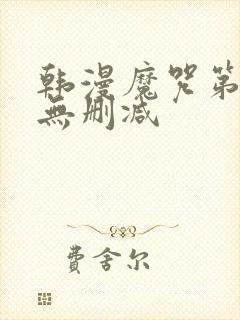 韩漫魔咒第
無删减
费舍尔